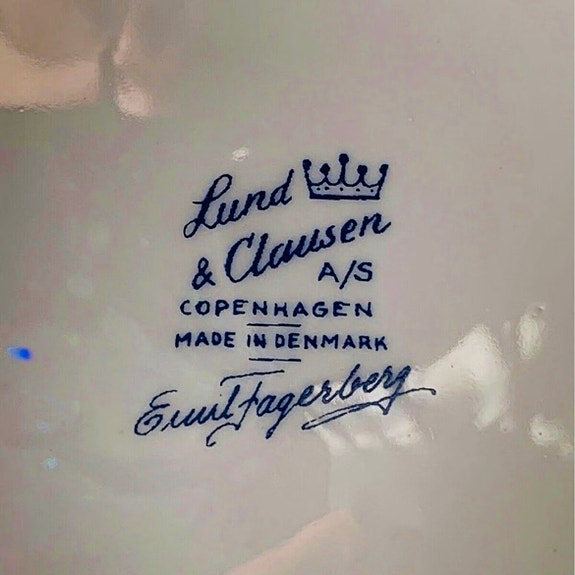 Lund
& Clausen
A/S
COPENHAGEN
MADE IN DENMARK
Emil Fagerberg